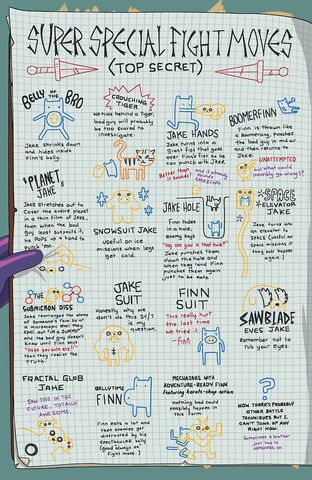 SUPER SPECIAL FIGHT MOVES
(TOP SECRET)
BELLY OF THE BRO
Jake shrinks down
and hides inside
Finn's belly.
CROUCHING
TIGER
We hide behind a Tiger,
bad guy will probably
be too scared to
investigate.
JAKE HANDS
Jake turns into a
Giant Fist that goes
over Finn's fist so he
can punch with Jake.
Better than
it sounds!
and it already
sounds
AMAZING
BOOMERFINN
Finn is thrown like
a Boomerang, punches
the bad guy in mid air
and then returns to
Jake.
UNATTEMPTED
but what could
probably go wrong??
PLANET
JAKE
Jake stretches out to
cover the entire planet
in a thin film of Jake,
then when the bad
guy least suspects it,
he pops up a hand to
SNOWSUIT JAKE
useful on ice
missions when legs
get cold.
JAKE HOLE
Finn hides
in a hole,
enemy says
"Hey are you in that hole?"
Jake punches them
down the hole and
when they land Finn
punches them again
just to be sure.
SPACE
ELEVATOR
JAKE
Jake turns into
an elevator to
space. Careful on
space missions if
they ever happen
again!
THE
SUBMICRON DISS
Jake rearranges the atoms
of someone's face so at
a microscopic level they
spell out "I'm a dummy" and
the bad guy doesn't know
until Finn says
"Nice face you got there"
then they realise the
truth.
JAKE
SUIT
Honestly why we
don't do this 24/7
is my
question.
FINN
SUIT
This really hurt
the last time
we tried it.
-Finn
SAWBLADE
EYES JAKE
Remember not to
rub your eyes.
FRACTAL GLOB
JAKE
SAW THIS IN THE
FUTURE, TOTALLY
AWESOME
BELLYTIME
FINN
Finn eats a lot and
then enemies get
distracted by his
spectacular belly
(good always on
fight move.)
MECHAJAKE WITH
ADVENTURE-READY FINN
Featuring karate-chop action
Nothing bad could
possibly happen in
this form.
?
HON THERE'S PROBABLY
OTHER BATTLE
TECHNIQUES BUT I
CAN'T THINK OF ANY
RIGHT NOW.
Sometimes a brother
just has to